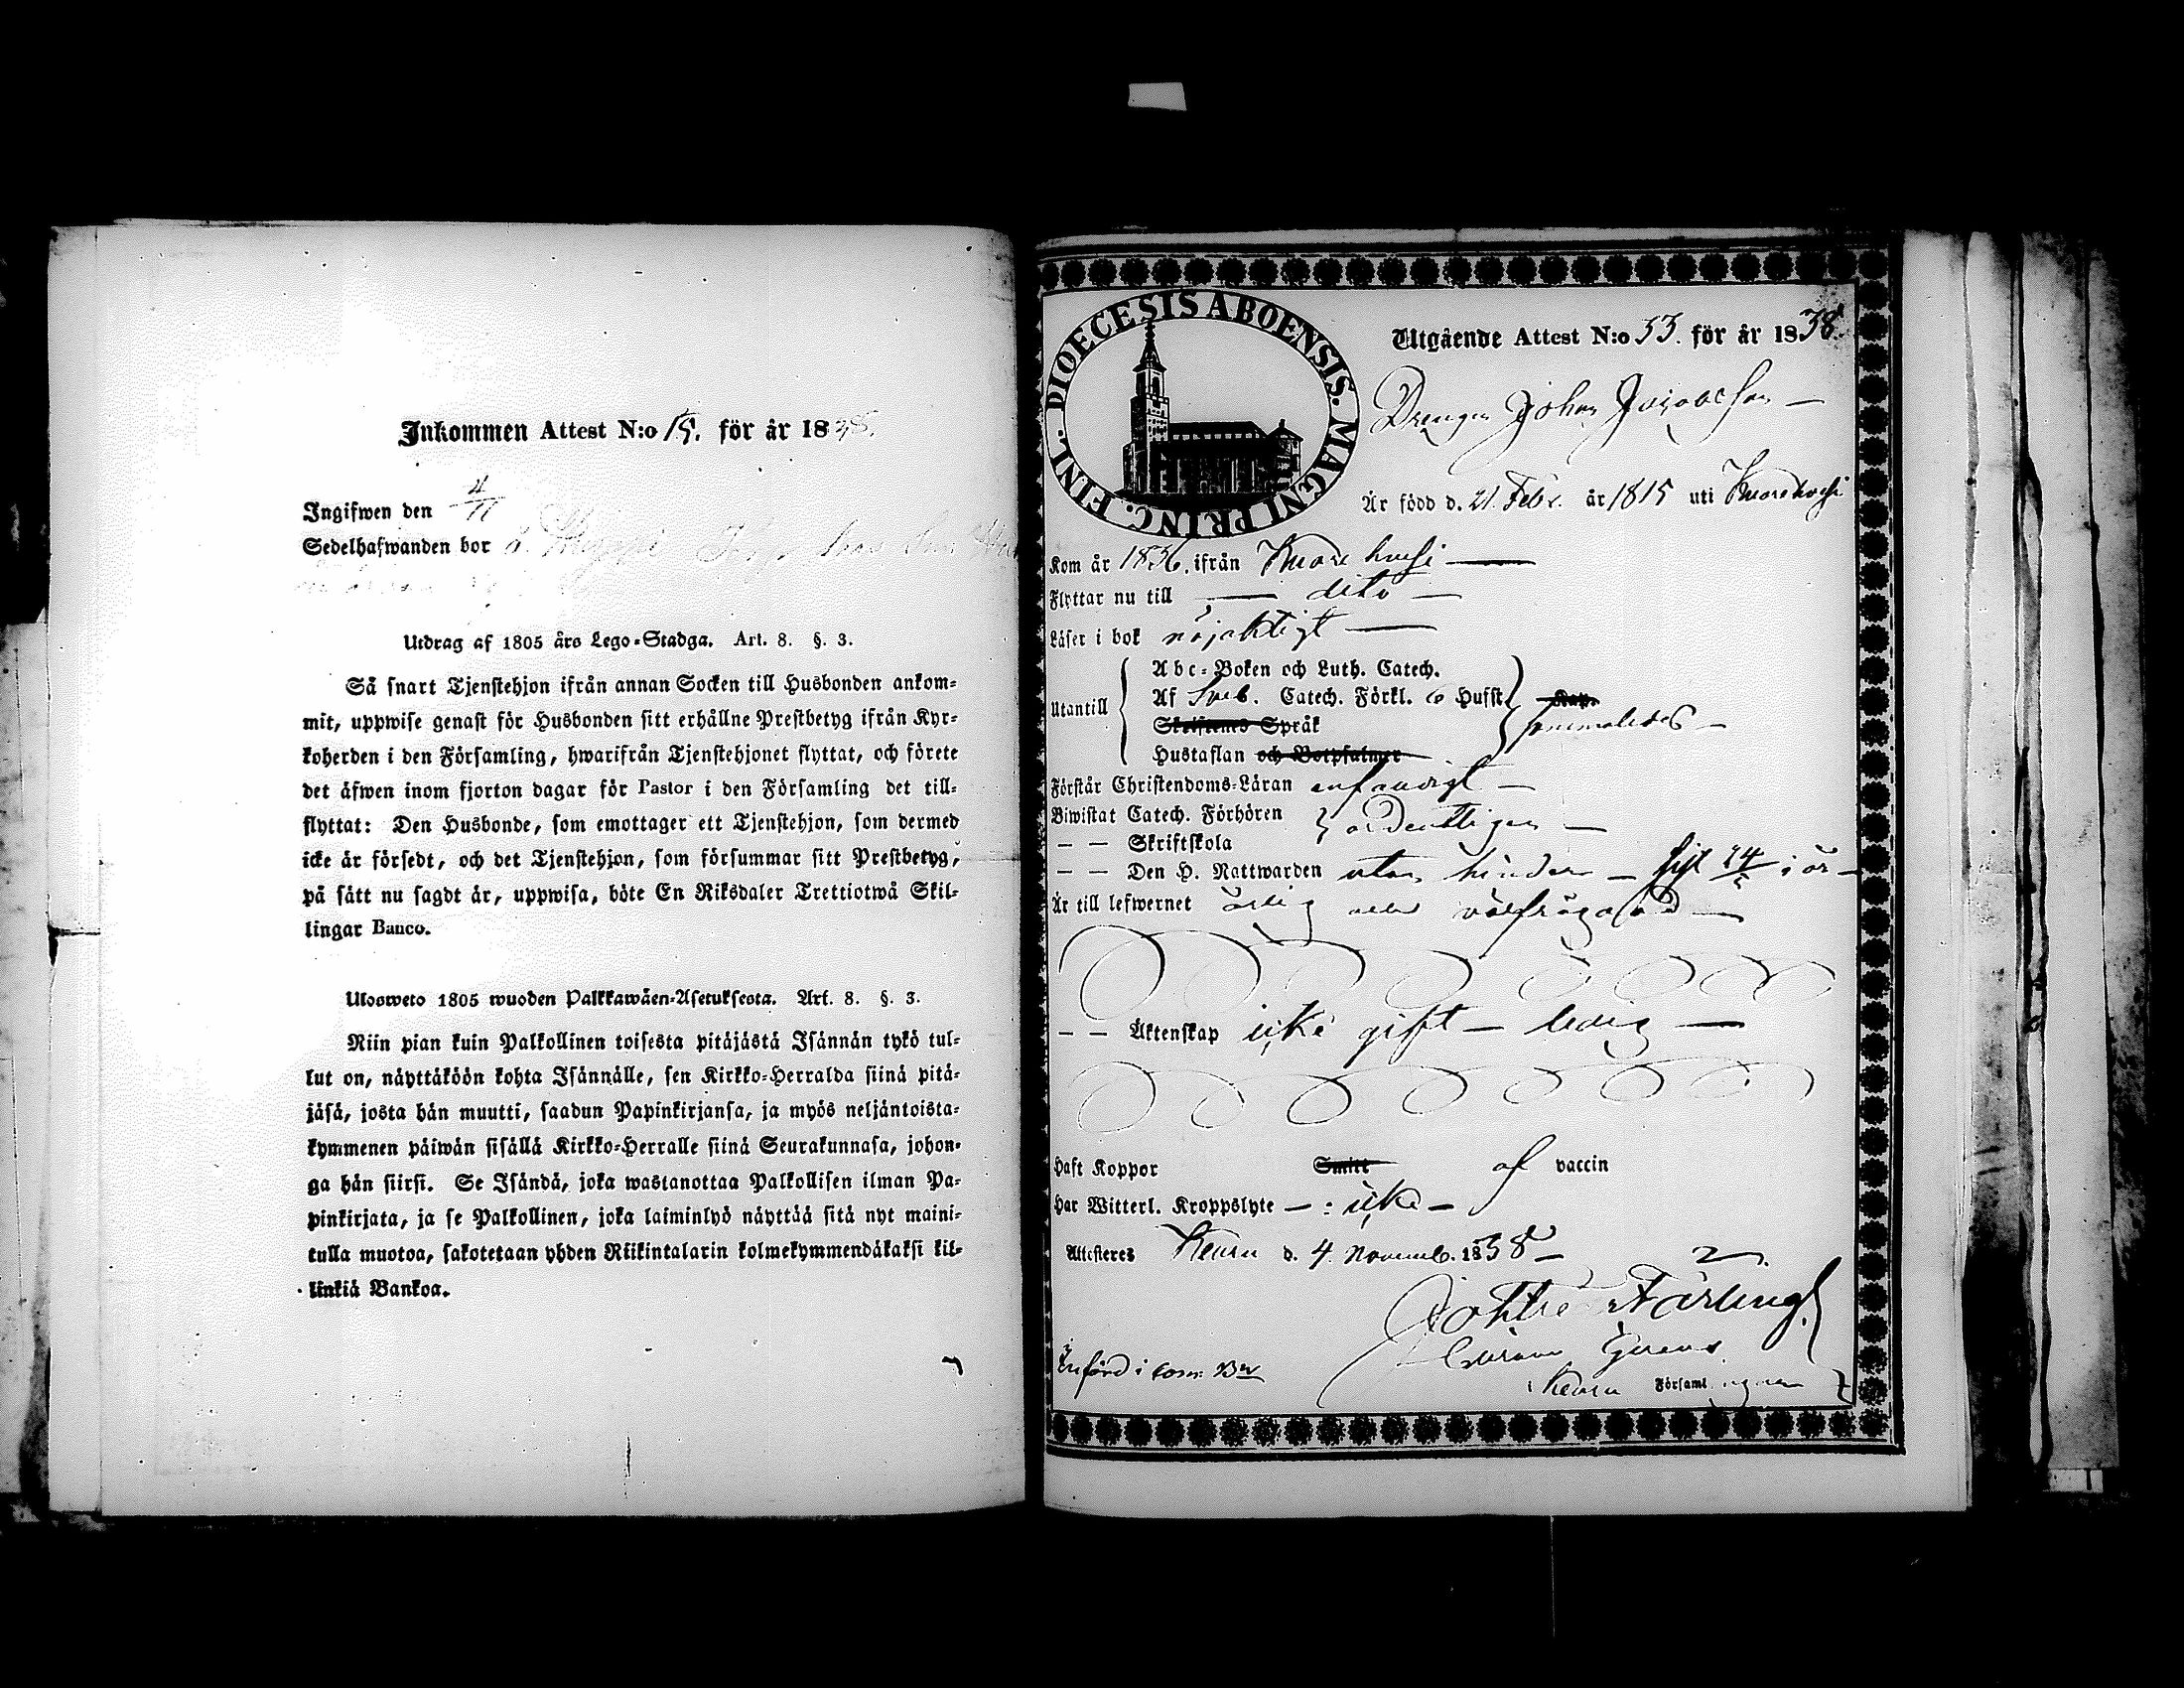 Inkommen Attest N:o 15. för år 1838.
Ingifwen den 4/11
Sedelhafwanden bor
Utdrag af 1805 års Lego-Stadga. Art. 8. §. 3.
Så snart Tjenstehjon ifrån annan Socken till Husbonden ankom-
mit, uppwise genast för Husbonden sitt erhållne Prestbetyg ifrån Kyr-
koherden i den Församling, hwarifrån Tjenstehjonet flyttat, och förete
det äfwen inom fjorton dagar för Pastor i den Församling det till-
flyttat: Den Husbonde, som emottager ett Tjenstehjon, som dermed
icke är försedt, och det Tjenstehjon, som försummar sitt Prestbetyg,
på sätt nu sagdt är, uppwisa, böte En Riksdaler Trettiotwå Skil-
lingar Banco.
Ulosweto 1805 wuoden Palkkawäen-Asetuksesta. Art. 8. §. 3.
Niin pian kuin Palkollinen toisesta pitäjästä Isännän tykö tul-
lut on, näyttäköön kohta Isännälle, sen Kirkko-Herralda siinä pitä-
jäsä, josta hän muutti, saadun Papinkirjansa, ja myös neljäntoista-
kymmenen päiwän sisällä Kirkko-Herralle siinä Seurakunnasa, johon-
ga hän siirsi. Se Isändä, joka wastanottaa Palkollisen ilman Pa-
pinkirjata, ja se Palkollinen, joka laiminlyö näyttää sitä nyt maini-
tulla muotoa, sakotetaan yhden Riikintalarin kolmekymmendäkaksi kil-
linkiä Bankoa.
DIOECESIS ABOENSIS. MAGNI PRINC. FINL.
Utgående Attest N:o 53. för år 1838.
Drengen Johan Jacobsson
Är född d. 21 Febr. år 1815 uti Kuorehvesi
Kom år 1836. ifrån Kuorehvesi
Flyttar nu till dito
Läser i bok nöjaktigt
Utantill
Abc-Boken och Luth. Catech.
Af Sveb. Catech. Förkl. 6 Hufst.
Skriftenes Språk
Hustaflan och Botpsalmer
Kap.
sammaledes
Förstår Christendoms-Läran enfaldigt
Biwistat Catech. Förhören
— — Skriftskola
ordentligen
— — Den H. Nattwarden utan hinder — sist i år
Är till lefwernet ärlig och välfrägdad
— — Äktenskap icke gift — ledig
Haft Koppor Smitt af vaccin
Har Witterl. Kroppslyte — : icke —
Attesteras Keuru d. 4 Novemb. 1838
Färling
Keuru Församl
Införd i Com. B